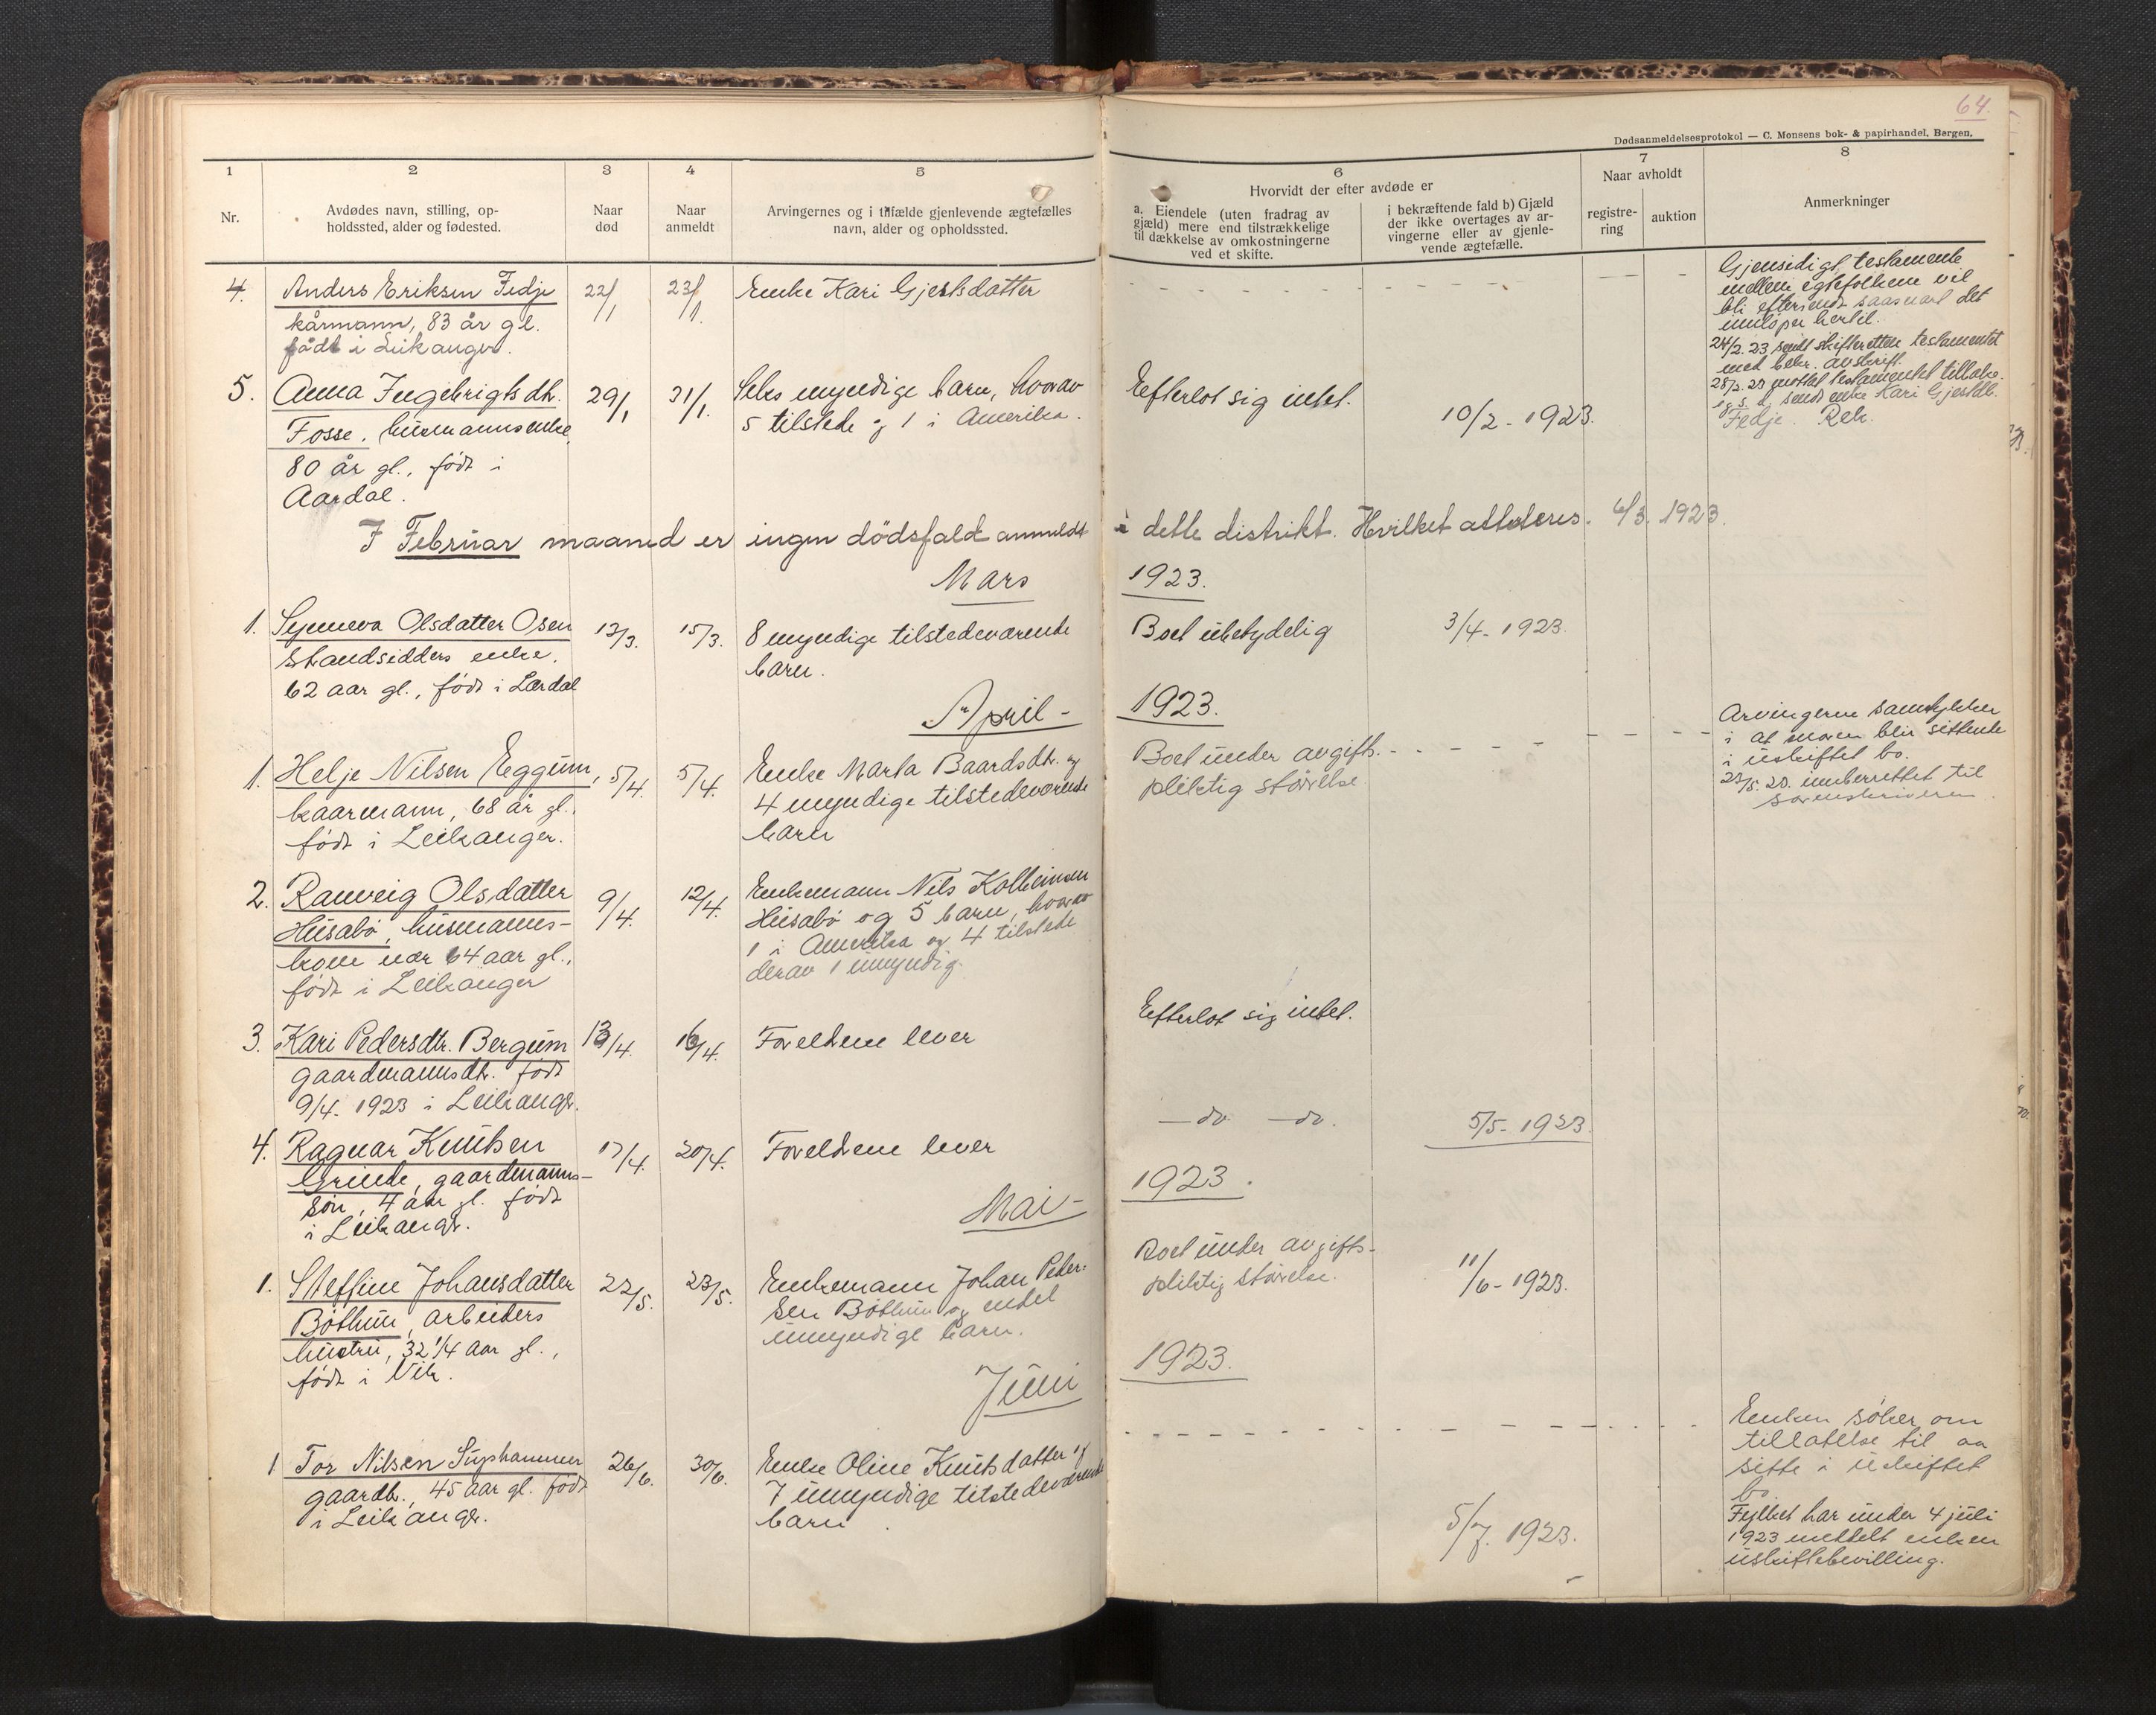 64.
Dødsanmeldelsesprotokol — C. Monsens bok- & papirhandel, Bergen.
1 2 3 4 5 6 7 8
Nr.
Avdødes navn, stilling, op-
holdssted, alder og fødested.
Naar
død
Naar
anmeldt
Arvingernes og i tilfælde gjenlevende ægtefælles
navn, alder og opholdssted.
Hvorvidt der efter avdøde er
a. Eiendele (uten fradrag av
gjæld) mere end tilstrækkelige
til dækkelse av omkostningerne
ved et skifte.
i bekræftende fald b) Gjæld
der ikke overtages av ar-
vingerne eller av gjenle-
vende ægtefælle.
Naar avholdt
registre-
ring
auktion
Anmerkninger
4. Anders Eriksen Fedje
kårmann, 83 år gl.
født i Leikanger.
22/1
23/1.
Enke Kari Gjestsdatter
Gjensidigt testamente
mellem egtefolkene vil
bli eftersendt saasnart det
innløper hertil.
24/2. 23 sendt skifteretten testamentet
med bekr. avskrift.
28/2. 23 mottat testamentet tilbake
og s. d. sendt enke Kari Gjestdtr.
Fedje. Reh.
5. Anna Ingebrigtsdtr.
Fosse, husmannsenke,
80 år gl., født i
Aardal.
29/1
31/1.
Seks myndige barn, hvorav
5 tilstede og 1 i Amerika.
Efterlot sig intet.
10/2 - 1923.
I Februar maaned er ingen dödsfald anmeldt i dette distrikt. Hvilket attesteres. 6/3. 1923.
Mars 1923.
1. Synneva Olsdatter Osen
Strandsidders enke,
62 aar gl., født i Lærdal
13/3.
15/3.
8 myndige tilstedeværende
barn.
Boet ubetydelig
3/4 - 1923.
April - 1923.
1. Helje Nilsen Eggum,
kaarmann, 68 år gl.,
født i Leikanger.
5/4.
5/4.
Enke Marta Baardsdtr. og
4 myndige tilstedeværende
barn
Boet under avgifts-
pliktig störrelse.
Arvingerne samtykker
i at moren blir sittende
i uskiftet bo.
23/5. 23. innberettet til
sorenskriveren.
2. Ranveig Olsdatter
Husabø, husmanns-
kone nær 64 aar gl.,
født i Leikanger
9/4.
12/4.
Enkemann Nils Kolbeinsen
Husabø og 5 barn, hvorav
1 i Amerika og 4 tilstede
derav 1 umyndig.
Efterlot sig intet.
3. Kari Pedersdtr. Bergum
gaardmannsdtr. født
9/4. 1923 i Leikangr.
13/4.
16/4.
Foreldrene lever
— do. — do.
5/5 - 1923.
4. Ragnar Knutsen
Grinde, gaardmanns-
søn, 4 aar gl. født
i Leikangr.
17/4.
20/4.
Foreldrene lever
Mai - 1923.
1. Steffine Johansdatter
Böthun, arbeiders
hustru, 32 1/4 aar gl.,
født i Vik.
22/5.
23/5.
Enkemann Johan Peder-
sen Böthun og endel
umyndige barn.
Boet under avgifts-
pliktig störrelse.
11/6 - 1923.
Juni 1923.
1 Tor Nilsen Suphammer
gaardbr., 45 aar gl. født
i Leikangr.
26/6.
30/6.
Enke Oline Knutsdatter og
7 umyndige tilstedeværende
barn.
5/7. 1923.
Enken söker om
tillatelse til aa
sitte i uskiftet
bo.
Fylket har under 4 juli
1923 meddelt enken
uskiftebevilling.